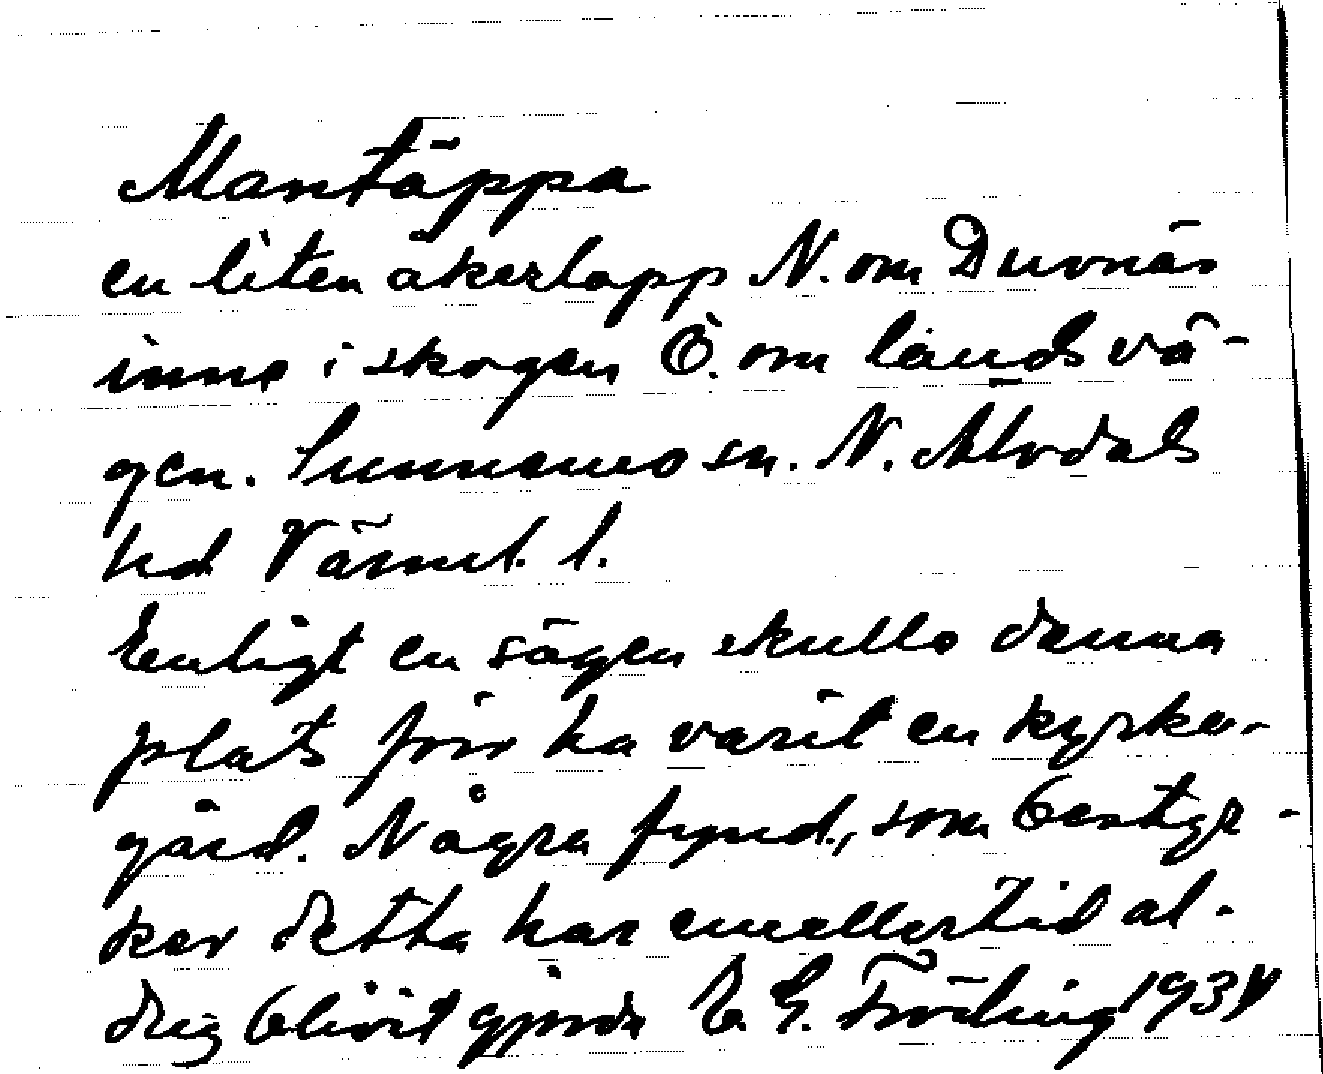 Mantäppa
en liten åkerlapp N. om Duvnäs
inne i skogen Ö. om landsvä-
gen. Sunnemo sn. N. Älvdals
hd Värml. l.
Enligt en sägen skulle denna
plats förr ha varit en kyrko-
gård. Några fynd, som bestyr-
ker detta har emellertid al-
drig blivit gjorda E. G. Fröding 1934